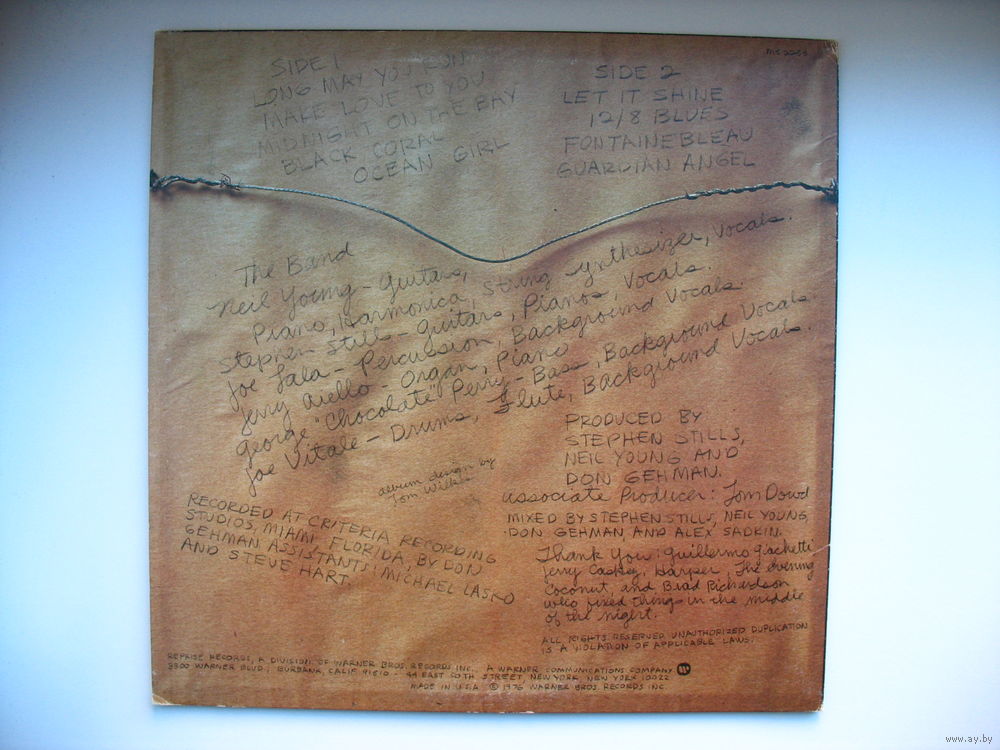 MS 2253
SIDE 1
LONG MAY YOU RUN
MAKE LOVE TO YOU
MIDNIGHT ON THE BAY
BLACK CORAL
OCEAN GIRL
SIDE 2
LET IT SHINE
12/8 BLUES
FONTAINEBLEAU
GUARDIAN ANGEL
The Band
Neil Young - Guitars,
Piano, Harmonica, String synthesizer, Vocals.
Stephen Stills - Guitars, Pianos, Vocals.
Joe Lala - Percussion, Background Vocals.
Jerry Aiello - Organ, Piano
George "Chocolate" Perry - Bass, Background Vocals
Joe Vitale - Drums, Flute, Background Vocals.
album design by
Tom Wilkes
PRODUCED BY
STEPHEN STILLS,
NEIL YOUNG AND
DON GEHMAN.
associate Producer: Tom Dowd
MIXED BY STEPHEN STILLS, NEIL YOUNG,
DON GEHMAN, AND ALEX SADKIN.
Thank You: Guillermo Giachetti
Jerry Caskey, Harper, The evening
Coconut, and Brad Richardson
who fixed things in the middle
of the night.
RECORDED AT CRITERIA RECORDING
STUDIOS, MIAMI FLORIDA, BY DON
GEHMAN ASSISTANTS: MICHAEL LASKO
AND STEVE HART.
ALL RIGHTS RESERVED UNAUTHORIZED DUPLICATION
IS A VIOLATION OF APPLICABLE LAWS.
REPRISE RECORDS, A DIVISION OF WARNER BROS. RECORDS INC., A WARNER COMMUNICATIONS COMPANY
3300 WARNER BLVD., BURBANK, CALIF. 91510 - 44 EAST 50TH STREET, NEW YORK NEW YORK 10022
MADE IN U.S.A. © 1976 WARNER BROS. RECORDS INC.
www.ay.by